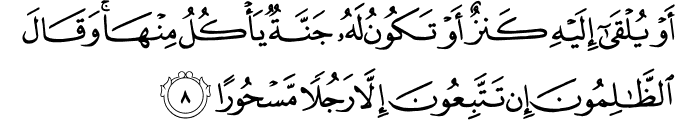 أَوۡ يُلۡقَىٰٓ إِلَيۡهِ كَنزٌ أَوۡ تَكُونُ لَهُۥ جَنَّةٞ يَأۡكُلُ مِنۡهَاۚ وَقَالَ
ٱلظَّٰلِمُونَ إِن تَتَّبِعُونَ إِلَّا رَجُلٗا مَّسۡحُورًا ٨